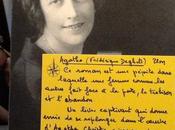 Agatha (Frédérique Deghelt) Plon
Ce roman est une pépite dans
laquelle une femme comme les
autres fait face à la perte, la trahison
et l'abandon
Un livre captivant qui donne
envie de se replonger dans l'œuvre
d'Agatha Christie